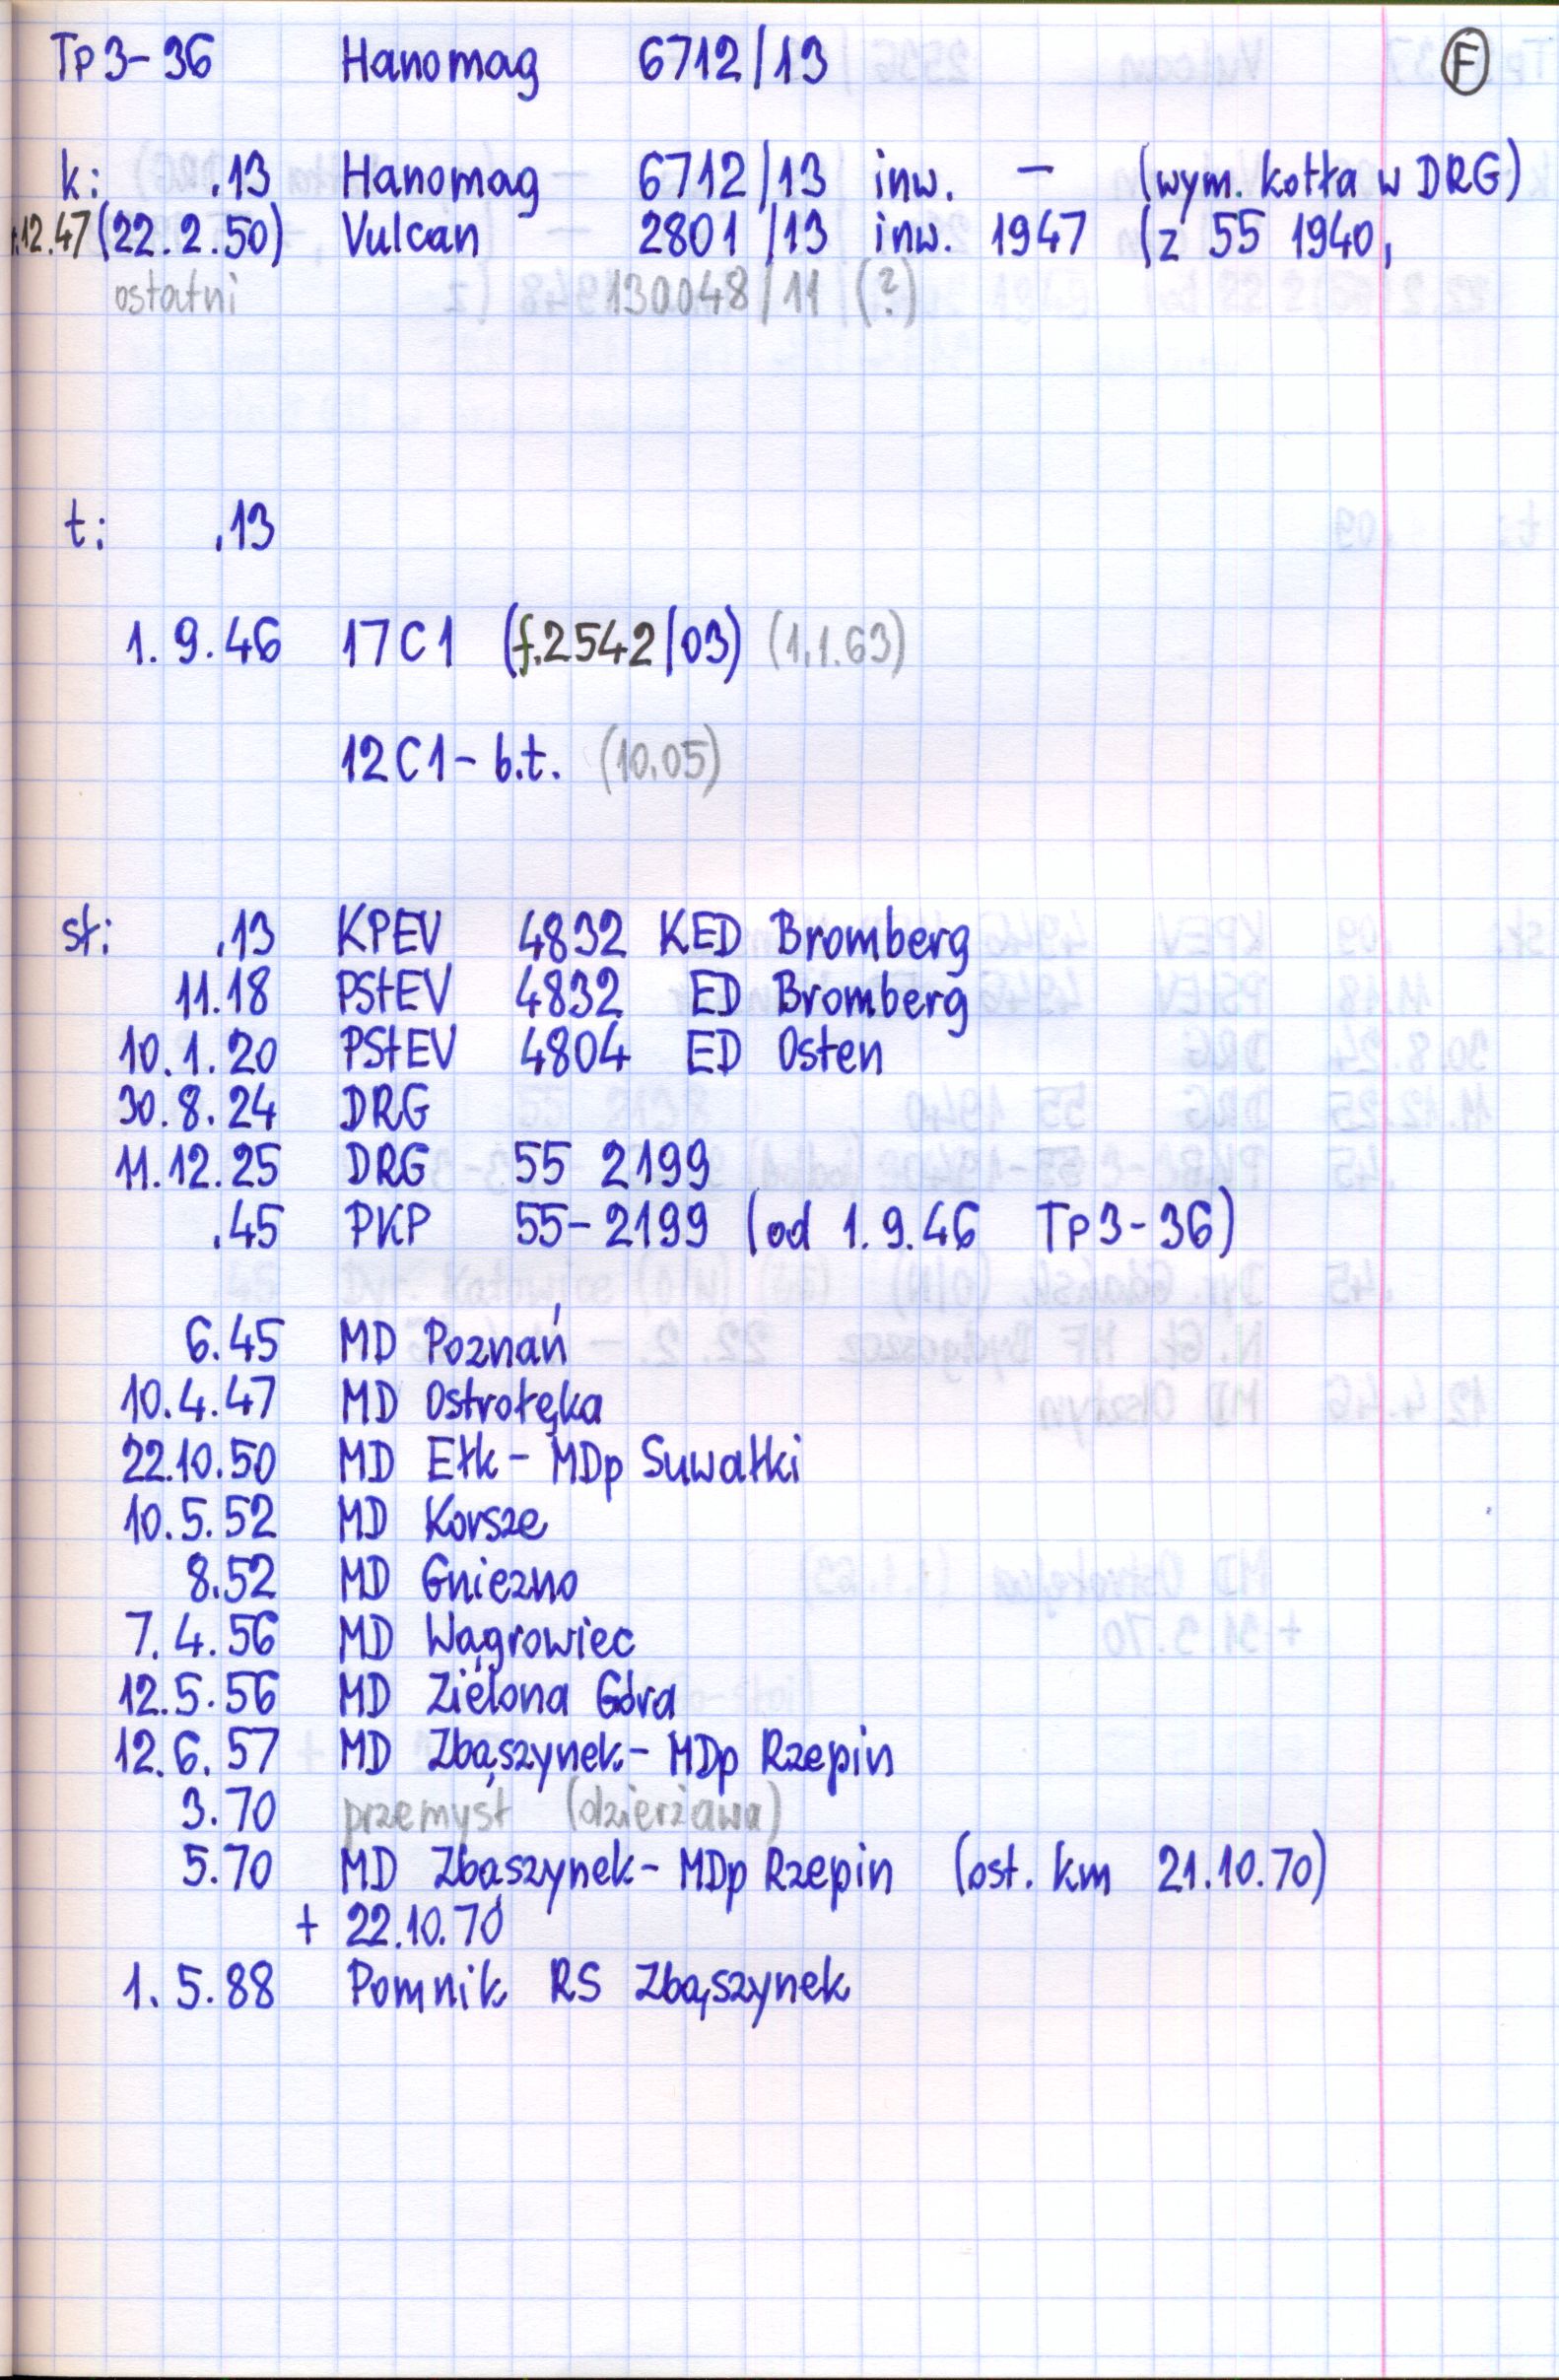 Tp3-36 Hanomag 6712/13 F
k: .13 Hanomag 6712/13 inw. - (wym. kotła w DRG)
12.47 (22.2.50) Vulcan 2801/13 inw. 1947 (z 55 1940,
ostatni 130048/11 (?)
t: .13
1.9.46 17C1 (f.2542/03) (1.1.63)
12C1- b.t. (10.05)
st: .13 KPEV 4832 KED Bromberg
11.18 PStEV 4832 ED Bromberg
10.1.20 PStEV 4804 ED Osten
30.8.24 DRG
11.12.25 DRG 55 2199
.45 PKP 55-2199 (od 1.9.46 Tp3-36)
6.45 MD Poznań
10.4.47 MD Ostrołęka
22.10.50 MD Ełk - MDp Suwałki
10.5.52 MD Korsze
8.52 MD Gniezno
7.4.56 MD Wągrowiec
12.5.56 MD Zielona Góra
12.6.57 MD Zbąszynek - MDp Rzepin
3.70 przemysł (dzierżawa)
5.70 MD Zbąszynek - MDp Rzepin (ost. km 21.10.70)
+ 22.10.70
1.5.88 Pomnik RS Zbąszynek